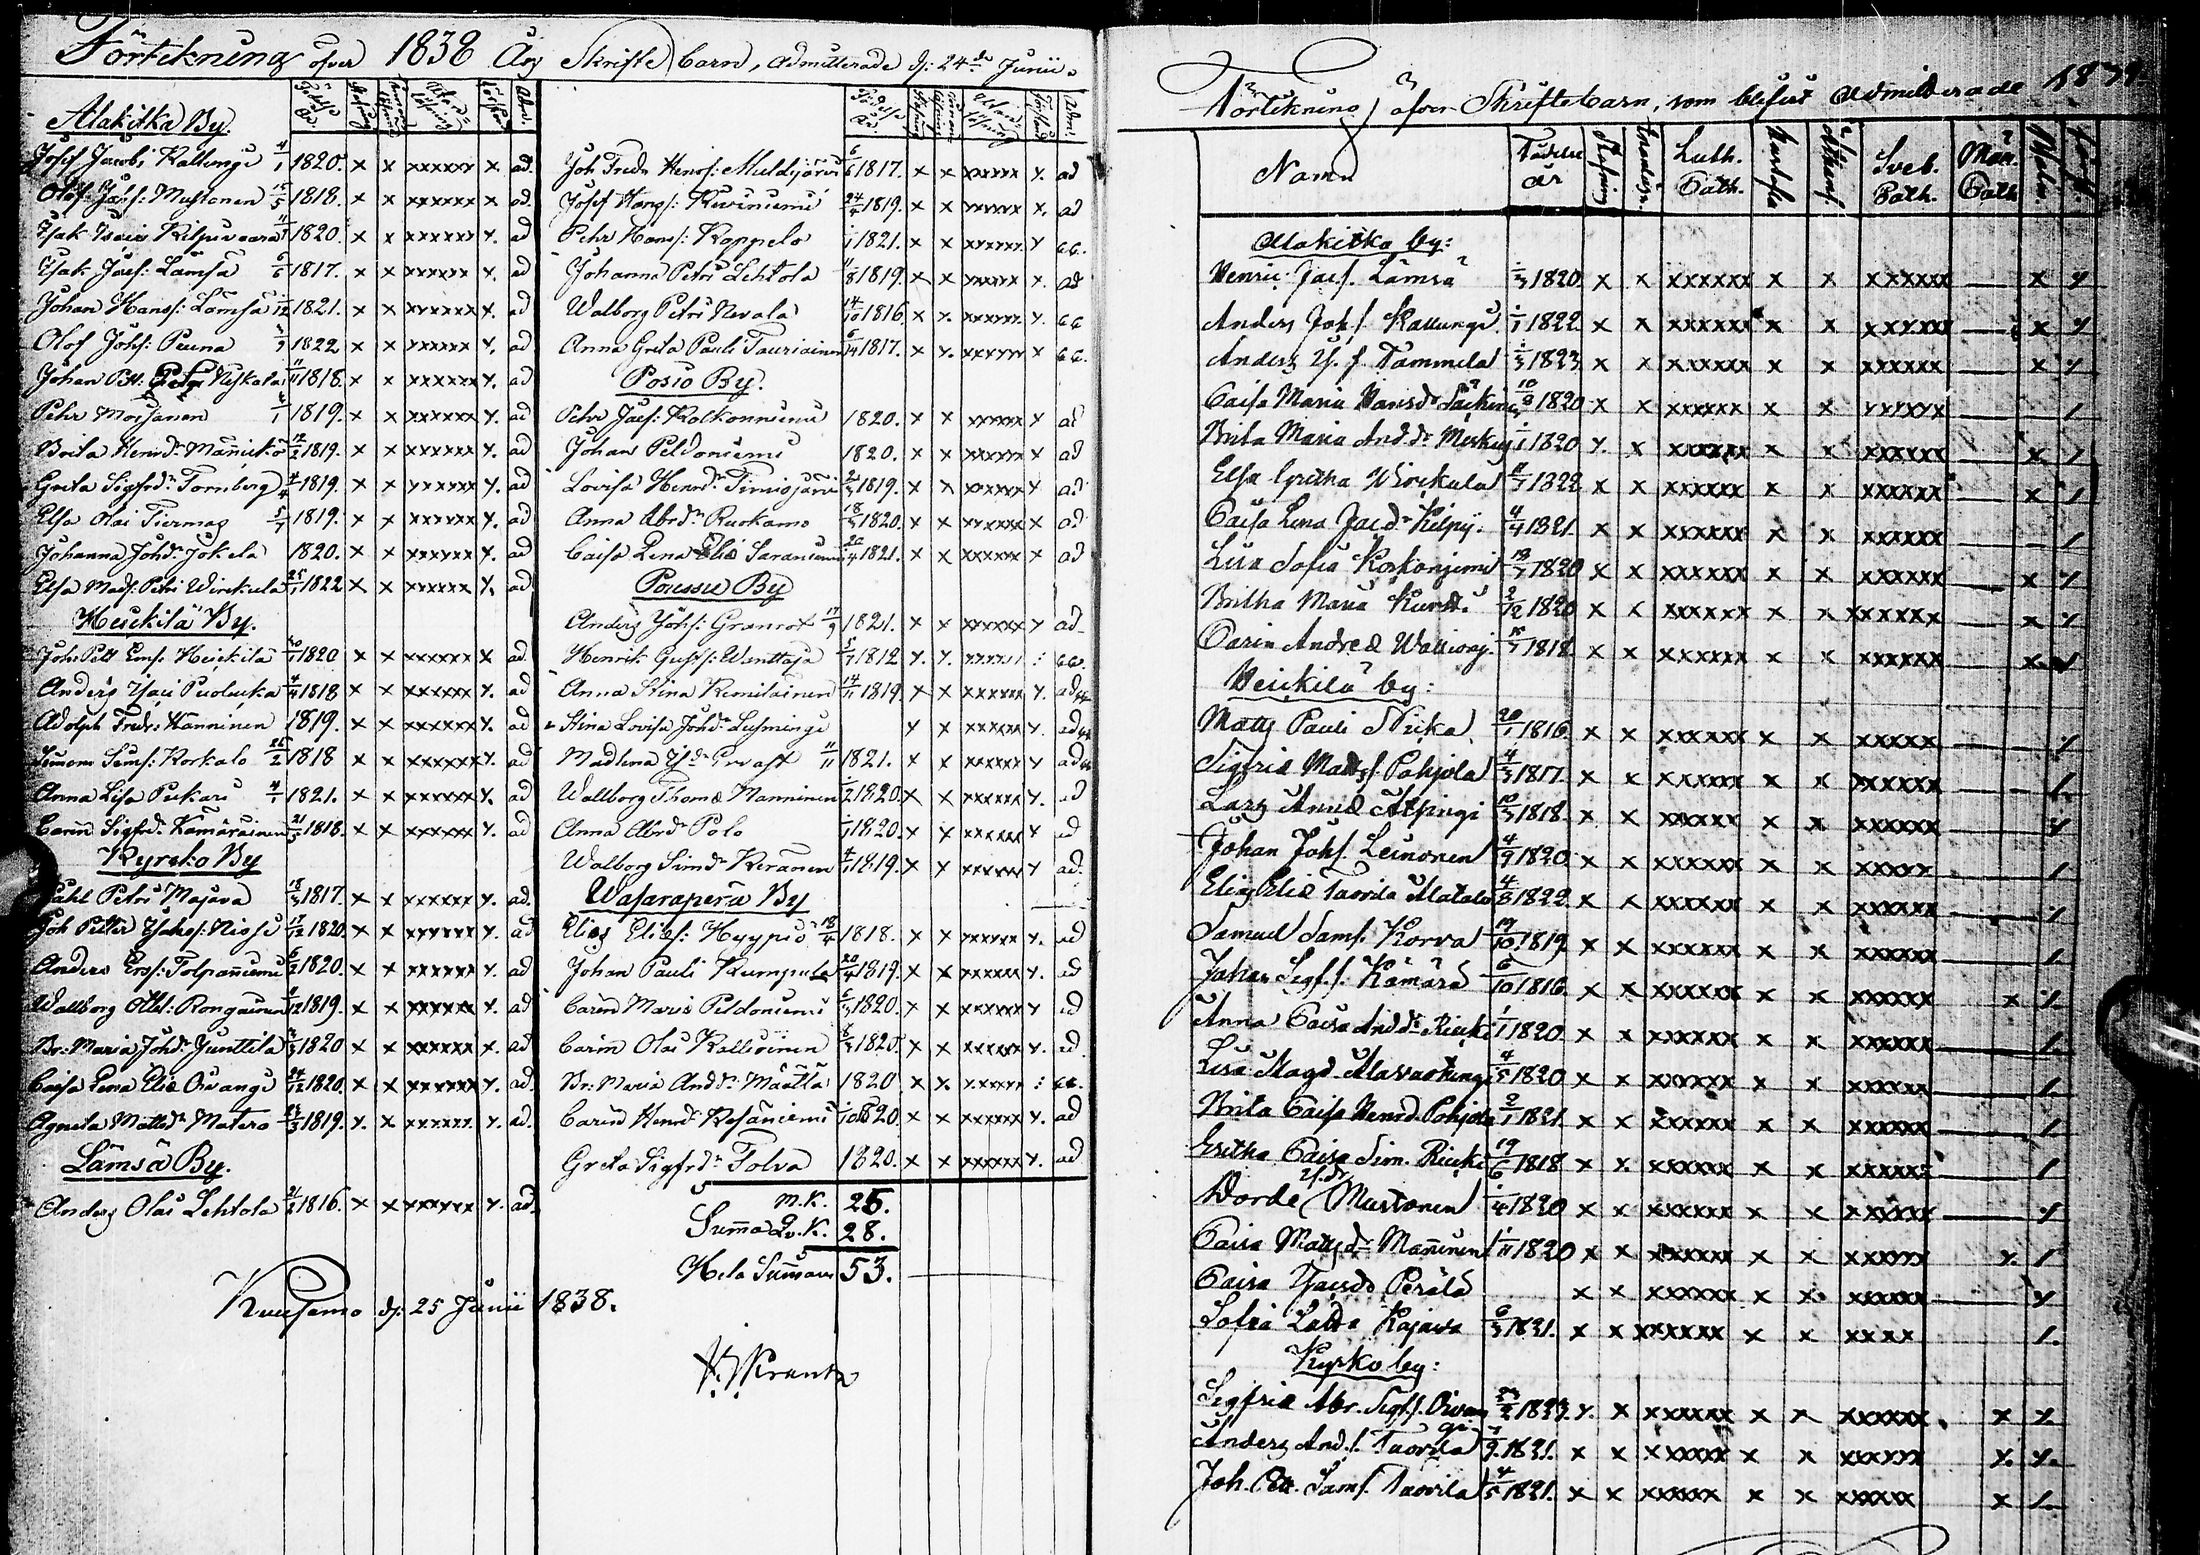 Förtekning öfver 1838 Års Skriftebarn, admitterade d: 24de Junii.
Födelse År. adm.
Alakitka By.
Josef Jacobs: Kallunge 4/1 1820. x x xxxxxx x ad.
Olof Jahs: Mustonen 15/5 1818. x x xxxxxx x ad.
Isak Isaics Kilpivaara 11/1 1820. x x xxxxxx x. ad
Isak Jaes: Lämsä 6/6 1817. x x xxxxxx x. ad
Johan Hanss: Lämsä 1/12 1821. x x xxxxxx x. ad
Olof Johs: Peuna 1822 x x xxxxxx x. ad
Johan Pett: Niskala 11/11 1818. x x xxxxxx x. ad
Pehr Morjanen 1819. x x xxxxxx x. ad
Brita Henrdr Määttö 12/2 1819. x x xxxxxx x. ad
Greta Sigfrdr Tornberg 4/4 1819. x x xxxxxx x. ad
Elsa Olai Tiermas 5/7 1819. x x xxxxxx x. ad
Johanna Johdr Jokela 1820. x x xxxxxx x. ad
Elsa Mad: Petri Wirkula 25/1 1822 x x xxxxxx x. ad
Heikkilä By.
Joh: Pett Ems: Heikkilä 20/1 1820 x x xxxxxx x ad.
Anders Isaci Puolucka 4/4 1818 x x xxxxxx x. ad
Adolph Fredrs Hänninen 1819. x x xxxxxx x. ad
Simon Sims: Korkalo 26/2 1818 x x xxxxxx x. ad
Anna Lisa Pukari 4/1 1821. x x xxxxxx x. ad
Carin Sigfrd: Kämäräinen 21/5 1818. x x xxxxxx x. ad
Kyrcko By
Pahl Petri Majava 18/3 1817. x x xxxxxx x. ad.
Joh Petter Isaks: Niosi 17/12 1820. x x xxxxxx x. ad
Anders Erss: Tolpanniemi 6/2 1820. x x xxxxxx x. ad
Wallborg Abl: Rongainen 1819. x x xxxxxx x. ad
Br: Maria Johdr Junttila 1820 x x xxxxxx x. ad
Caisa Lena Eliæ Oivange 24/12 1820. x x xxxxxx x. ad.
Agneta Mattsdr Matero 24/3 1819. x. x xxxxxx x. ad.
Lämsä By.
Anders Olai Lehtola 21/2 1816. x x xxxxxx x. ad.
Kuusamo d: 25 Junii 1838.
Födelse År. Adm:
Joh Fredr Henrss: Muldjärvi 6/6 1817. x x xxxxxx x. ad
Josef Hanss: Kiviniemi 24/4 1819. x x xxxxxx x. ad
Pehr Hanss: Koppelo 1821. x x xxxxxx x
Johanna Petri Lehtola 11/8 1819. x x xxxxxx x. ad
Walborg Petri Nevala 14/10 1816. x x. xxxxxx x.
Anna Greta Pauli Tauriainen 1817. x x. xxxxxx x
Posio By.
Pehr Jaes: Kolkonniemi 1820. x x xxxxxx x ad
Johan Peldoniemi 1820. x x xxxxxx x ad
Lovisa Henrdr Timisjärvi 2/3 1819. x x xxxxxx x ad
Anna Abrdr Ruokamo 18/3 1820. x x xxxxxx x ad
Caisa Lena Eliæ Saraniemi 20/4 1821. x x xxxxxx x ad
Poussu By
Anders Johs: Granrot 17/9 1821. x x xxxxxx x ad
Henrik Gusts: Wanttaja 5/7 1812 x. x.
Anna Stina Kemilainen 14/11 1819. x x xxxxxx x. ad
Stina Lovisa Johdr Lusminge x x xxxxxx x. ad
Madlena Isdr Ervast 11/11 1821. x x xxxxxx x ad
Wallborg Thomæ Manninen 1820. x x xxxxxx x. ad
Anna Abrdr Polo 1820. x x xxxxxx x ad
Walborg Simdr Keränen 1819. x x xxxxxx x ad.
Wasaraperä By
Elias Eliæs: Hyypiö 18/4 1818. x x xxxxxx x. ad
Johan Pauli Kumpula 20/4 1819. x x xxxxxx x. ad
Carin Maria Peldoniemi 1820. x x xxxxxx x ad
Carin Olai Kallioinen 8/3 1820. x x xxxxxx x. ad.
Br: Maria Anddr: Määttä 1820 x x. xxxxxx
Carin Henrdr Kesäniemi 1820. x x xxxxxx x. ad
Greta Sigfrdr Tolva 1820. x x xxxxxx x. ad
M.K. 25.
Summa Qv.K. 28.
Hela Summan 53.
Förtekning öfver Skriftebarn, som blifvit admitterade 1839
Namn Födelse år Luth. Cath. Sveb. Cath.
Alakitka by:
Henric Jacs. Lämsä 1/3 1820 x x xxxxxx x x xxxxxx — x x
Anders Johs. Kallunge 1/1 1822 x x xxxxxx x x xxxxxx — x x
Anders Is. s. Tammela 1/3 1823 x x xxxxxx x x xxxxxx — x x
Caisa Maria Hansdr Säckinen 10/3 1820 x x xxxxxx x x xxxxxx — 1
Brita Maria And.dr Merkug 1/1 1820 x. x xxxxxx x x xxxxxx — x. 1
Elsa Gretha Wirkula 1822 x x xxxxxx x x xxxxxx — x 1
Caisa Lena Jacdr Kilpij. 4/4 1821. x x xxxxxx x x xxxxxx — 1
Lisa Sofia Korkonjemi 1820 x x xxxxxx x x xxxxxx — x x
Britha Maria Kurtti 2/12 1820 x x xxxxxx x x xxxxxx — x x
Carin Andreæ Wallioaj. 1818. x x xxxxxx x x xxxxxx — x
Heickilä by:
Matts Pauli Niska 20/1 1816. x x xxxxxx x x xxxxx — x
Sigfrid Mattss. Pohjola 4/3 1817. x x xxxxxx x x xxxxxx — 1.
Lars And. Alpingi 10/3 1818. x x xxxxx x x xxxxxx — x
Johan Johs. Leinonen 4/9 1820. x x xxxxxx x x xxxxxx — 1
Elias Eliæ Tavrila Alatalo 1822 x x xxxxxx x x xxxxxx — x
Samuel Sams. Korva 19/10 1819 x x xxxxxx x x xxxxxx — 1.
Johan Sigf.s. Kämärä 6/10 1816. x x xxxxxx x x xxxxxx x x.
Anna Caisa And.dr Riicki 1/1 1820. x x xxxxxx x x xxxxxx — 1.
Lisa Magd. Alavaotunge 4/5 1820 x x xxxxxx x x xxxxxx — 1.
Brita Caisa Hensd. Pohjola 2/1 1821. x x xxxxxx x x xxxxxx — 1.
Gretha Caisa Sim. Riicki 19/6 1818 x x xxxxxx x x xxxxxx — 1
Worde Is.dr Mustonen 1/4 1820 x x xxxxxx x x xxxxxx — x
Caisa Mattsdr Manninen 1/11 1820 x x xxxxxx x x xxxxx x. 1
Caisa Jacsdr Perälä x x xxxxxx x x xxxxxx — x
Sofia Kajava 6/3 1821. x x xxxxxx x x xxxx 1.
Kyrko by:
Sigfrid Abr. Sigf.s. Oivange 1823. x. x xxxxxx x x xxxxxx. x x.
Anders And.s. Tavrila 1821. x x xxxxxx x x xxxxx x. x.
Joh. Pett. Sams. Tavrila 4/5 1821. x x xxxxxx x x xxxxx x 1.